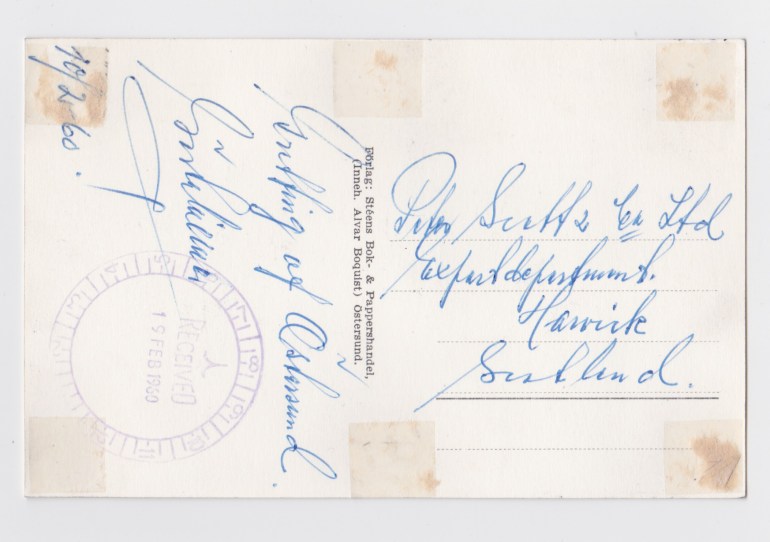 10/2-60.
Greeting of Östersund.
Förlag: Stéens Bok- & Pappershandel,
(Inneh. Alvar Boquist) Östersund.
Peter Scott & Co Ltd
Exportdepartment.
Hawick
Scotland.
RECEIVED
19 FEB 1960